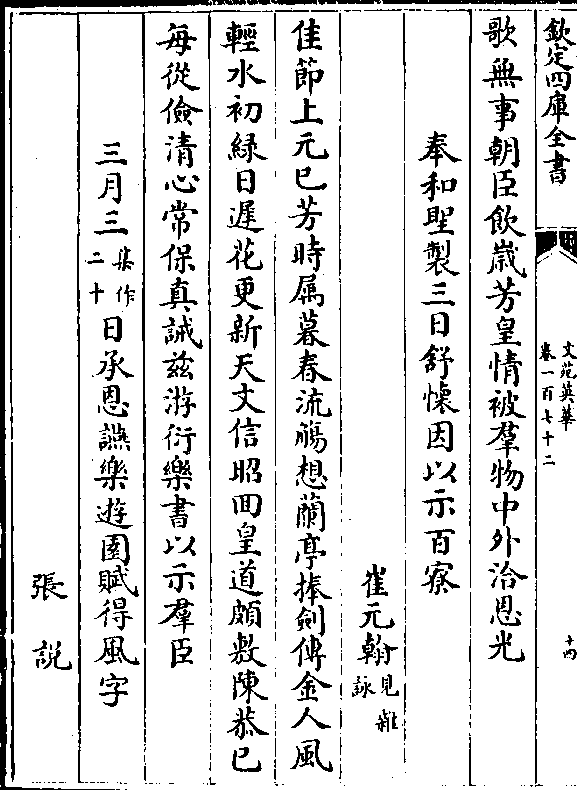 欽定四庫全書
文苑英華
卷一百七十二
十四
歌無事朝臣飲歲芳皇情被羣物中外洽恩光
奉和聖製三日舒懷因以示百寮
崔元翰見雜詠
佳節上元巳芳時屬暮春流觴想蘭亭捧劍傳金人風
輕水初綠日遲花更新天文信昭回皇道頗敷陳恭巳
每從儉清心常保真誡兹游衍樂書以示羣臣
三月三集作二十日承恩讌樂遊園賦得風字
張說